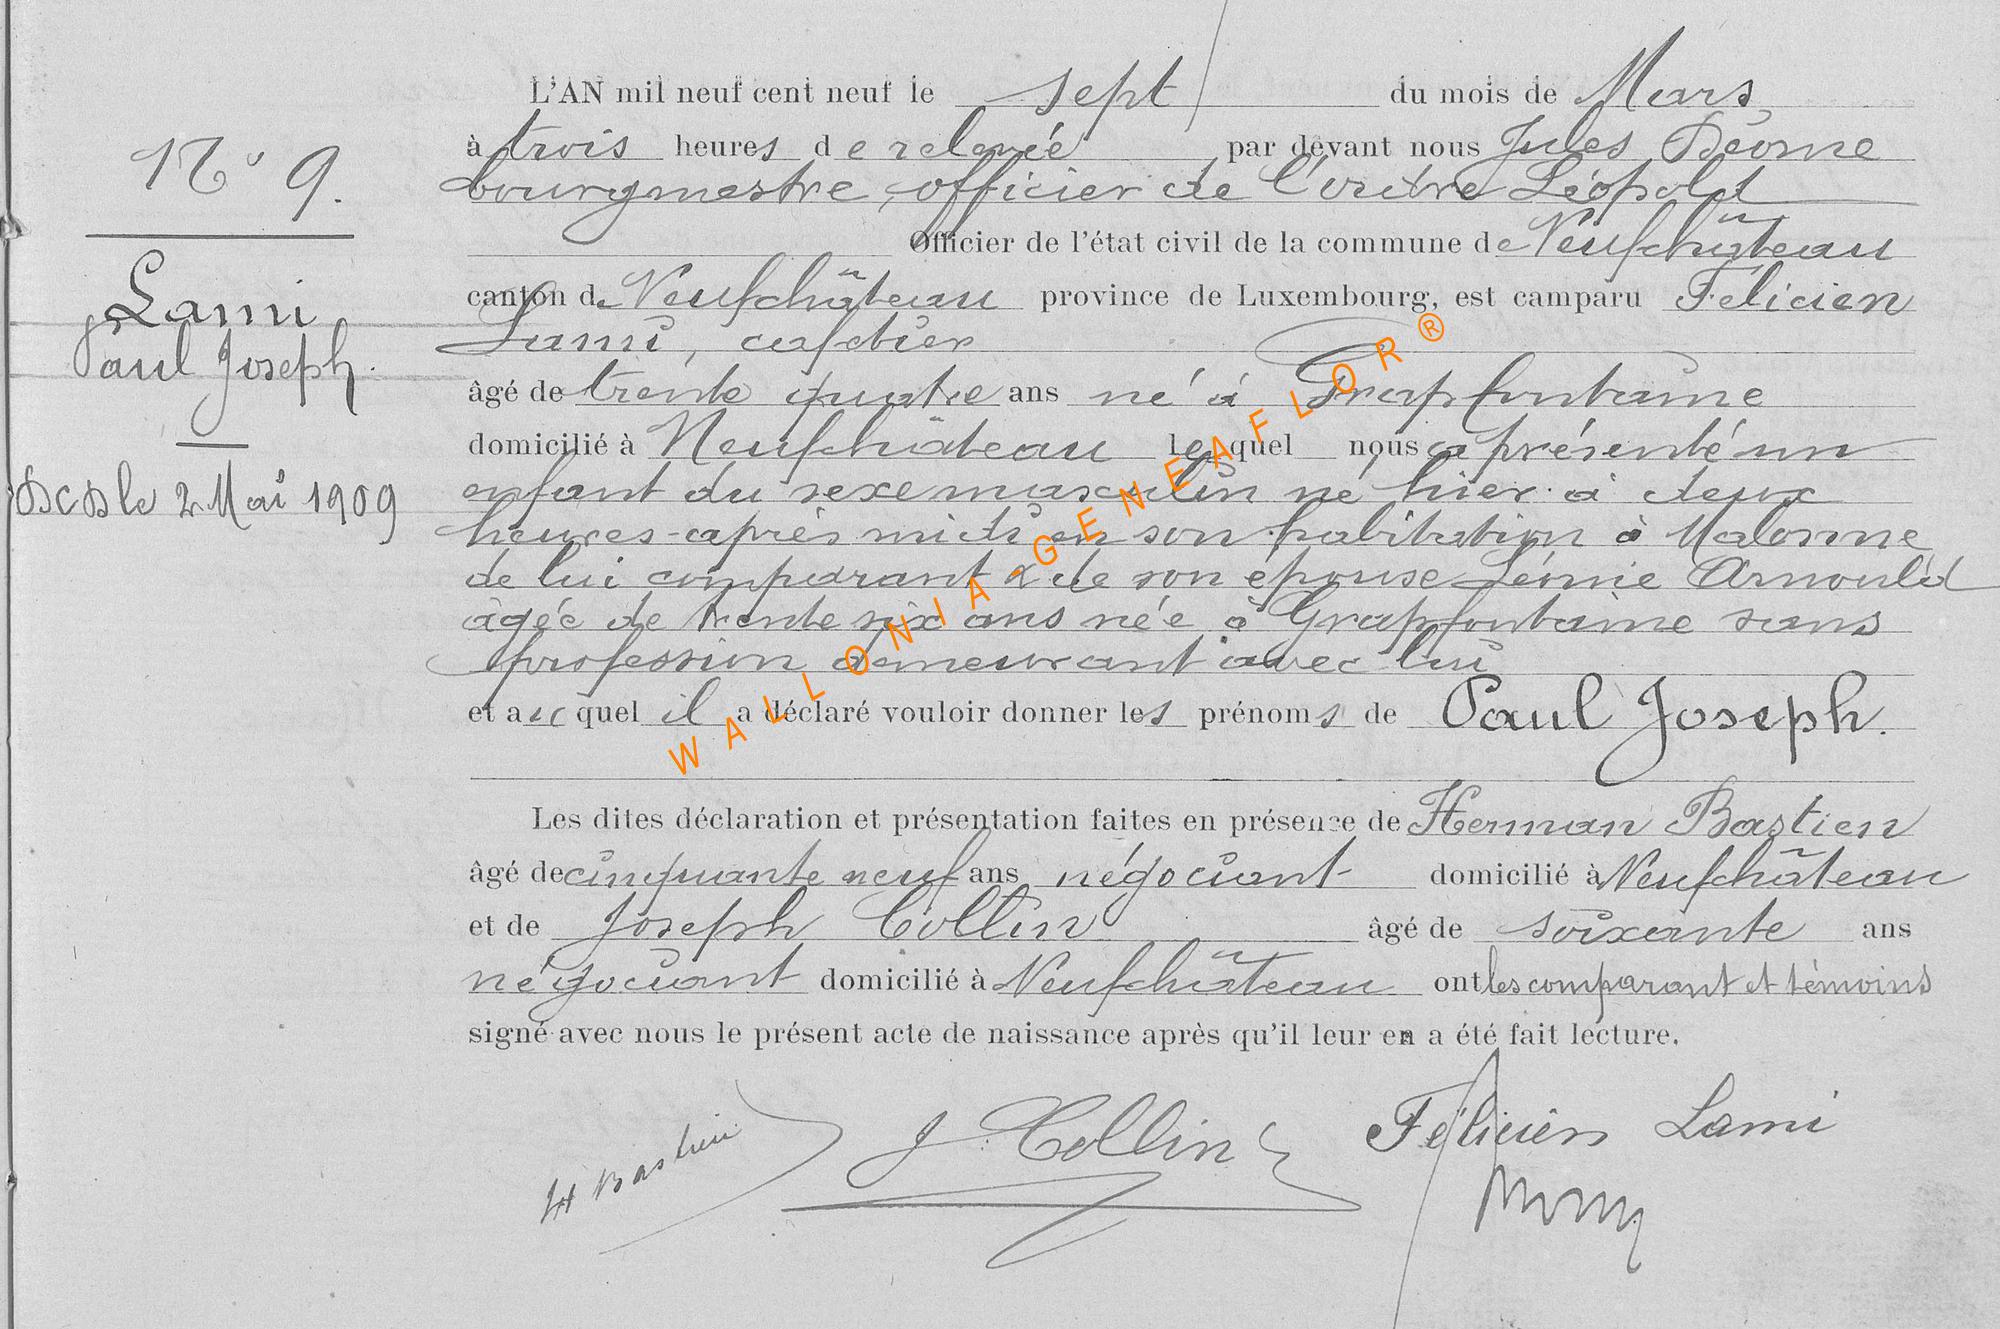 N° 9.
Lami
Paul Joseph.
Dcd le 2 Mai 1909
L'AN mil neuf cent neuf le sept du mois de Mars
à trois heures de relevée par devant nous Jules
bourgmestre, officier de l'ordre Léopold
Officier de l'état civil de la commune de Neufchâteau
canton de Neufchâteau province de Luxembourg, est camparu Félicien
Lami, cafetier
âgé de trente quatre ans né à Grapfontaine
domicilié à Neufchâteau lequel nous a présenté un
enfant du sexe masculin né hier à deux
heures après midi en son habitation à Malome
de lui comparant & de son épouse Léonie Arnould
âgée de trente six ans née à Grapfontaine sans
profession demeurant avec lui
et auquel il a déclaré vouloir donner les prénoms de Paul Joseph.
Les dites déclaration et présentation faites en présence de Herman Bastien
âgé de cinquante neuf ans négociant domicilié à Neufchâteau
et de Joseph Collin âgé de soixante ans
négociant domicilié à Neufchâteau ont les comparant et témoins
signé avec nous le présent acte de naissance après qu'il leur en a été fait lecture.
H Bastien J. Collin Félicien Lami
WALLONIA-GENEAFLOR®